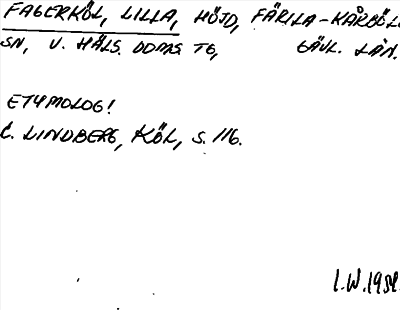 FAGERKÖL, LILLA, HÖJD, FÄRILA-KÅRBÖL
SN, V. HÄLS. DOMS. TG, GÄVL. LÄN.
ETYMOLOG!
C. LINDBERG, KÖL, S. 116.
I.W. 1984